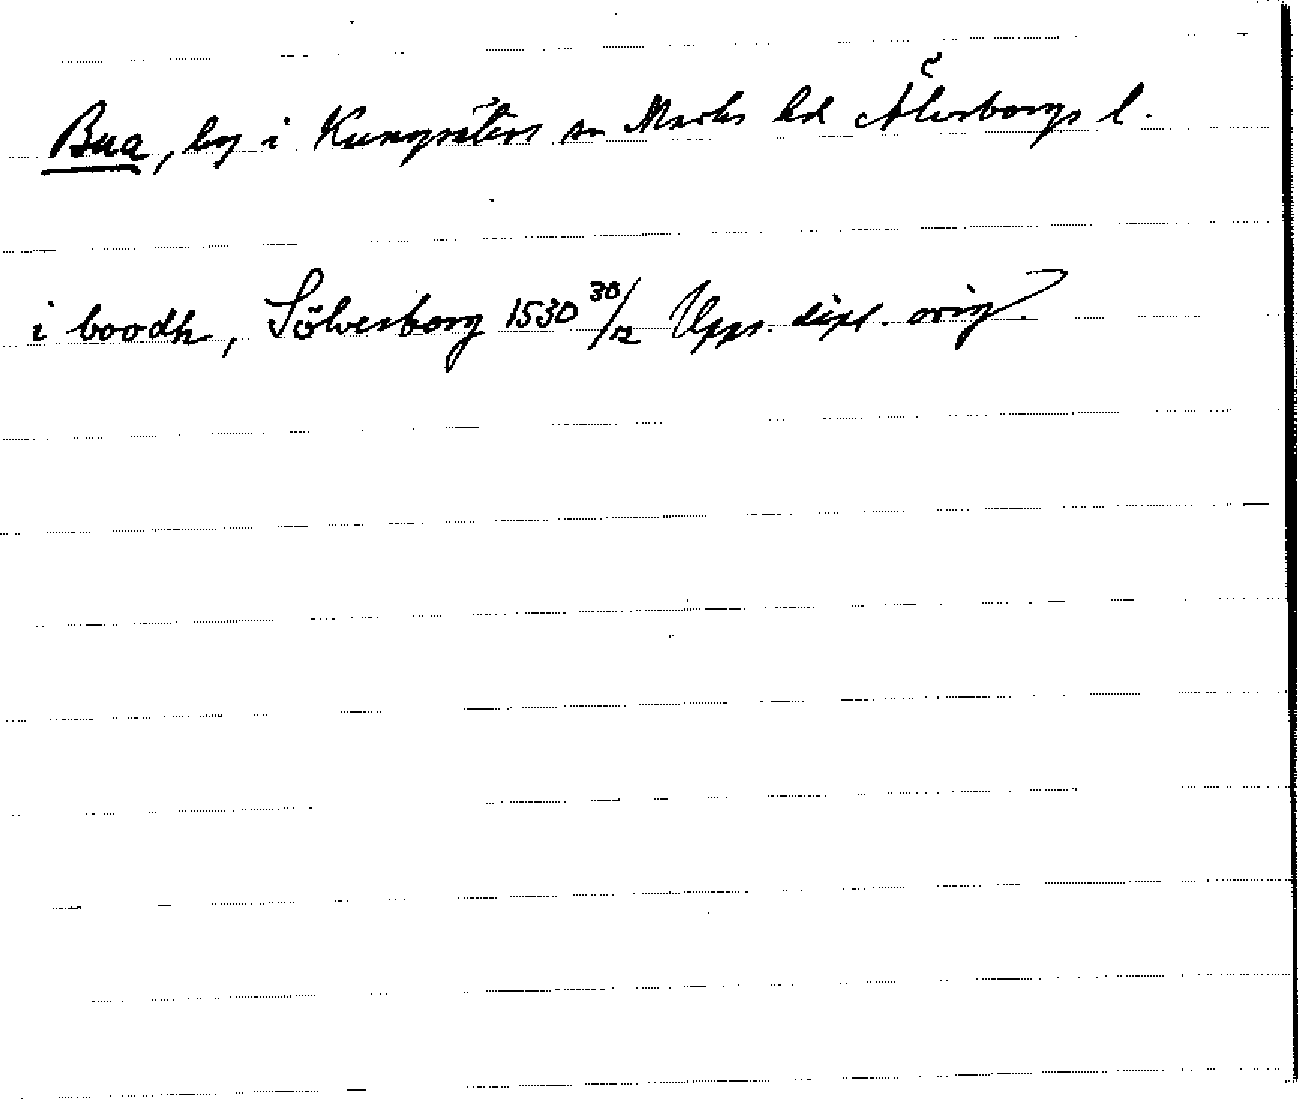 Bua, by i Kungsäters sn Marks hd Älvsborgs l.
i boodh, Sölvesborg 1530 30/12 Upps. dipl. orig.